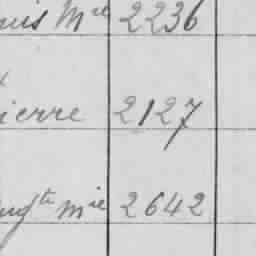 uis Mie 2236
ierre 2127
ugte mie 2642